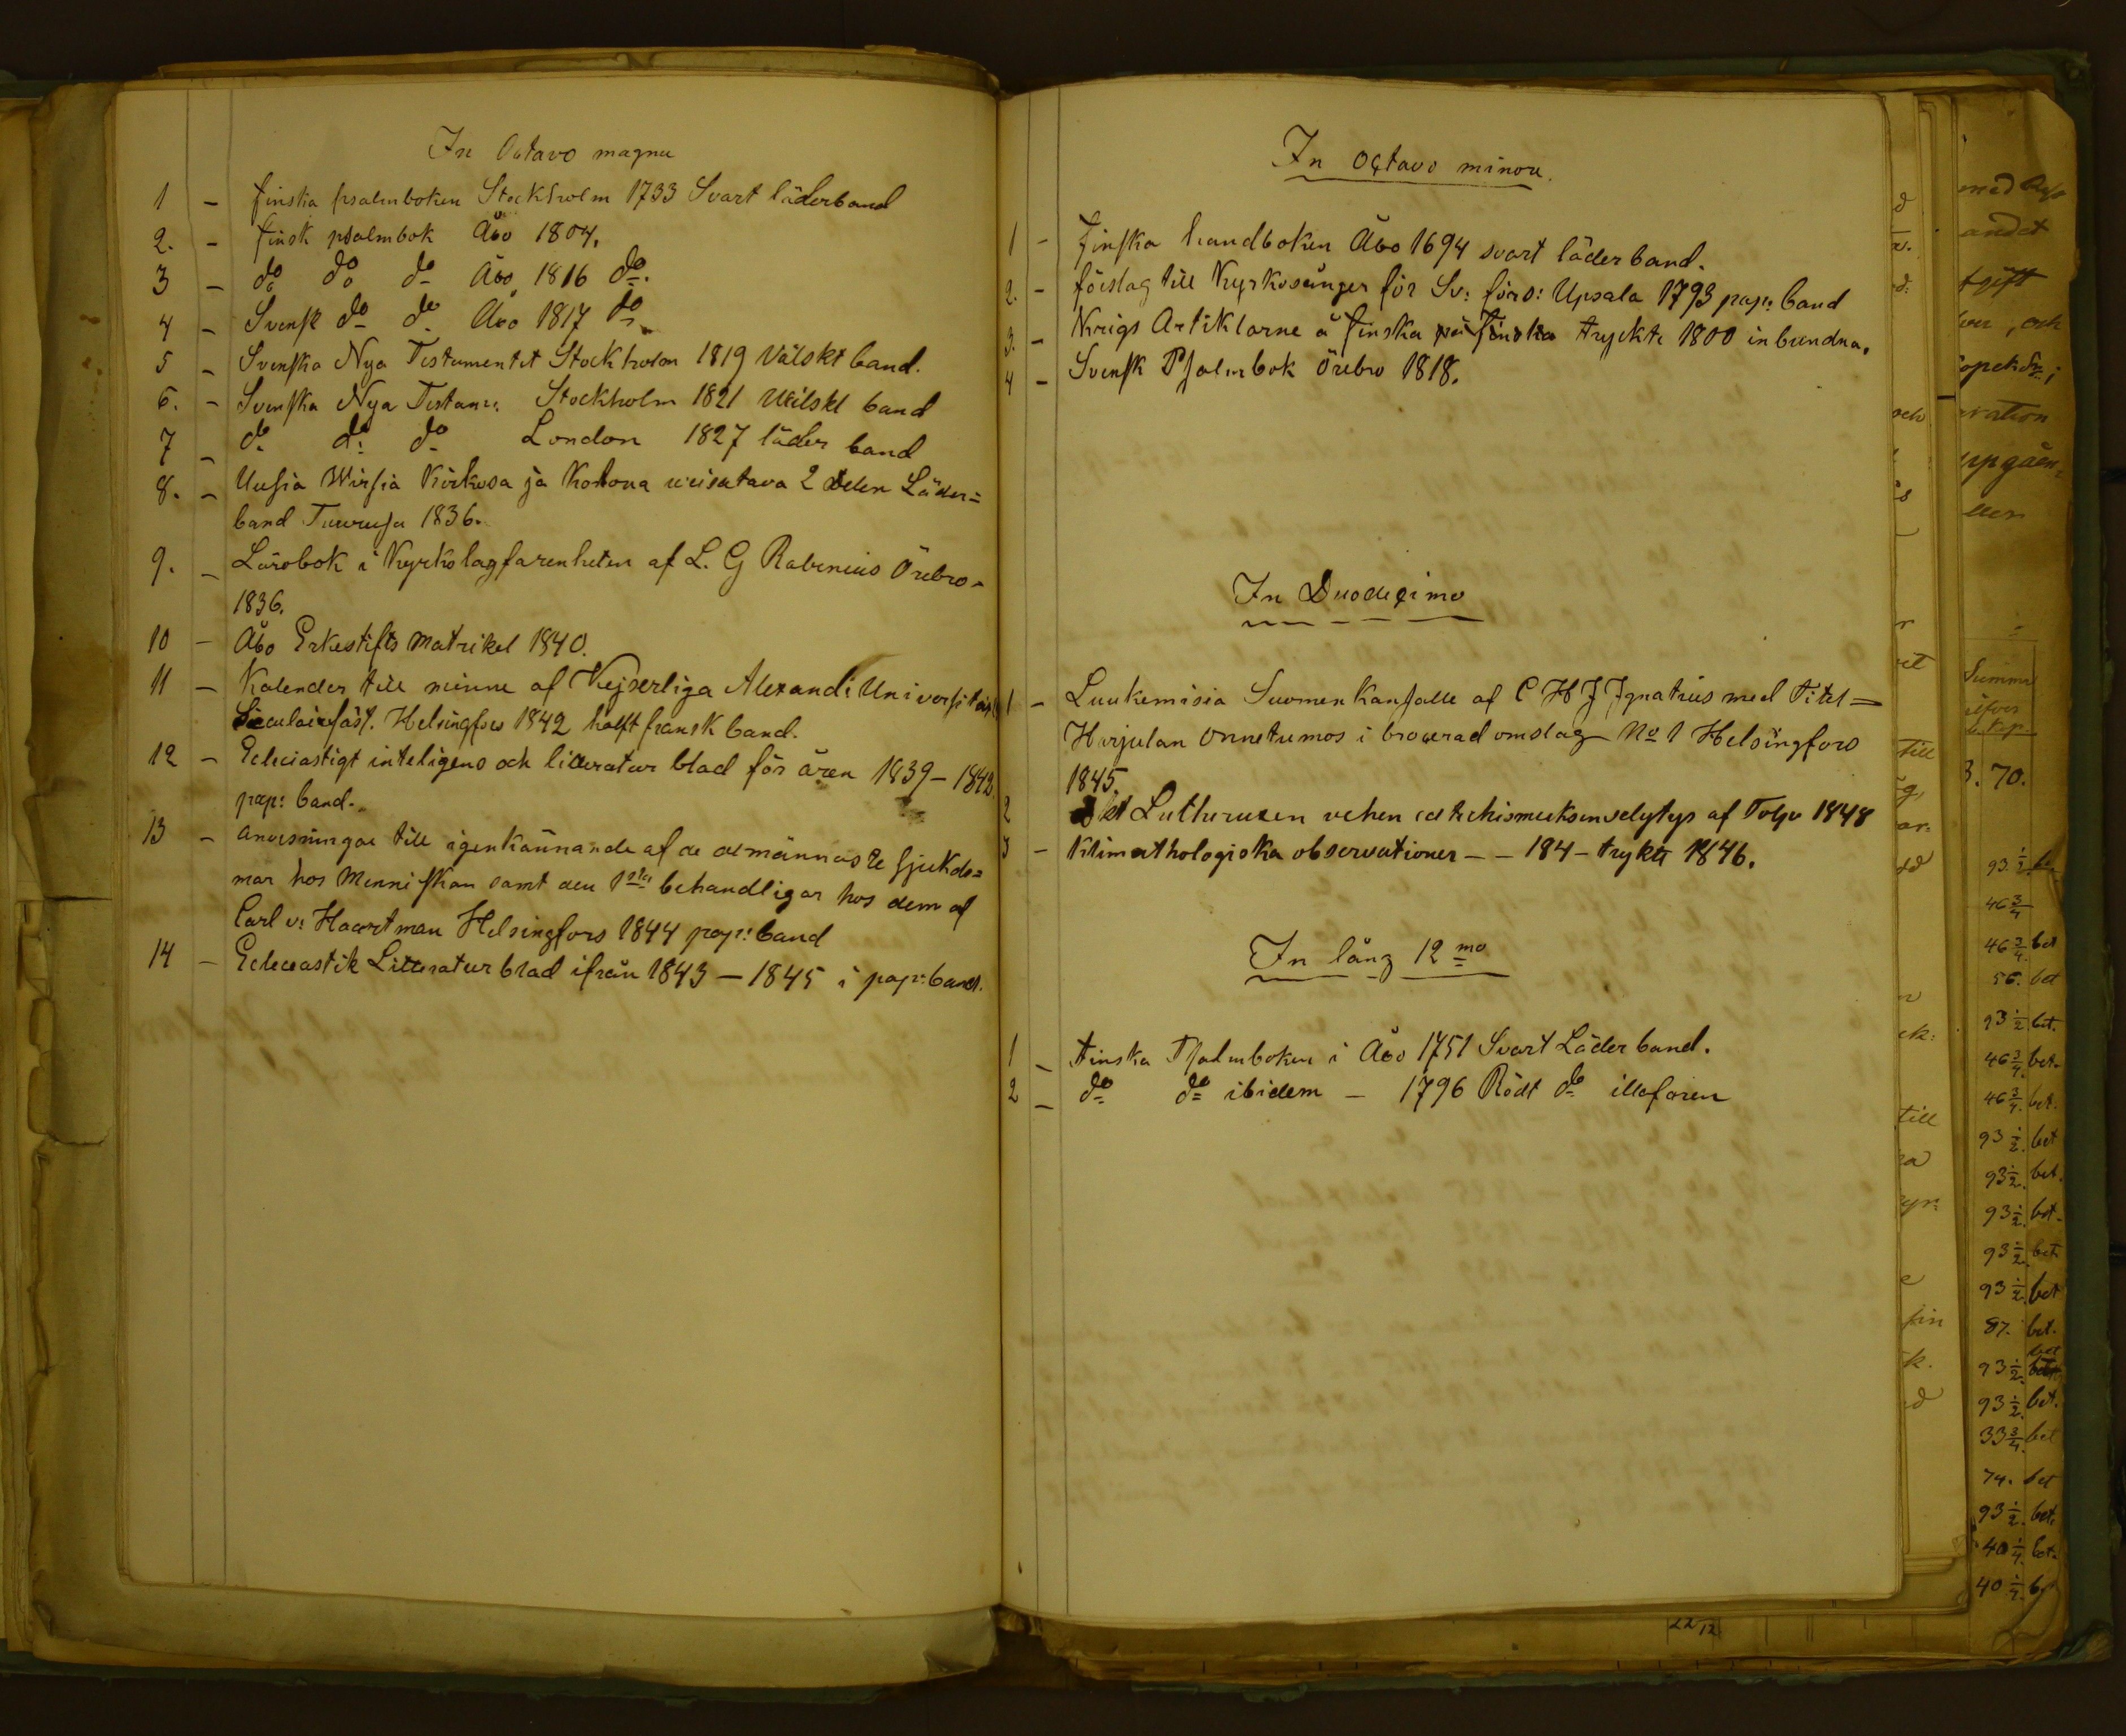 In Octavo magna
1 - finska psalmboken Stockholm 1733 Svart läderband
2. - finsk psalmbok Åbo 1804.
3 - do do do Åbo 1816 do.
4 - Svensk do do Åbo 1817 do
5 - Svenska Nya Testamentet Stockholm 1819 Välskt band.
6. - Svenska Nya Testam: Stockholm 1821 Wälskt band
7 - do do do London 1827 läder band
8. - Uusia Wirsiä Kirkosa ja Kotona weisatava 2 delen Läder=
band Turrusa 1836.
9. - Lärobok i Kyrkolagfarenheten af L. G Rabenius Örebro -
1836.
10 - Åbo Erkestifts Matrikel 1840.
11 - Kalender till minne af Kejserliga Alexand: Universitäts
Seculairfäst. Helsingfors 1842 halft fransk band.
12 - Eclesiastigt inteligens och litteratur blad för åren 1839 - 1842
pap: band.
13 - anvisningar till igenkännande af de almännaste sjukdo=
mar hos Menniskan samt den 1sta behandligar hos dem af
Carl v: Haartman Helsingfors 1844 pap: band
14 - Eclesiastik Litteratur blad ifrån 1843 - 1845 i pap: band.
In octavo minore.
1 - finska handboken Åbo 1694 svart läder band.
2. - förslag till Kyrkosånger för Sv: förs: Upsala 1793 pap: band
3. - Krigs Artiklarne å finska på finska tryckte 1800 inbundna.
4 - Svensk Psalmbok Örebro 1818.
In Duodecimo
1 - Luukemisia Suomen Kansalle af C H J Ignatius med Titel =
Harjulan Onnettumos i brocerad omslag No 1 Helsingfors
1845.
2 Lutheruxen vehen catechismuksen selytys af Tolpo 1848
3 - Klimathologiska observationer - - 184 - trykte 1846.
In lång 12mo
1 - Finska Psalmboken i Åbo 1751 Svart Läder band.
2 - do do ibidem - 1796 Rödt do illafaren
med
andet
och
uppgåen=
Summa
3. 70.
till
och
till
93 1/2
46 3/4
46 3/4 bet
56. bet
93 1/2 bet.
46 3/4 bet.
46 3/4. bet.
93 1/2. bet
93 1/2. bet.
93 1/2. bet.
93 1/2. bet.
93 1/2. bet
87. bet.
93 1/2. bet
93 1/2. bet.
33 3/4. bet
74. bet
93 1/2. bet.
40 1/4. bet.
40 1/4.